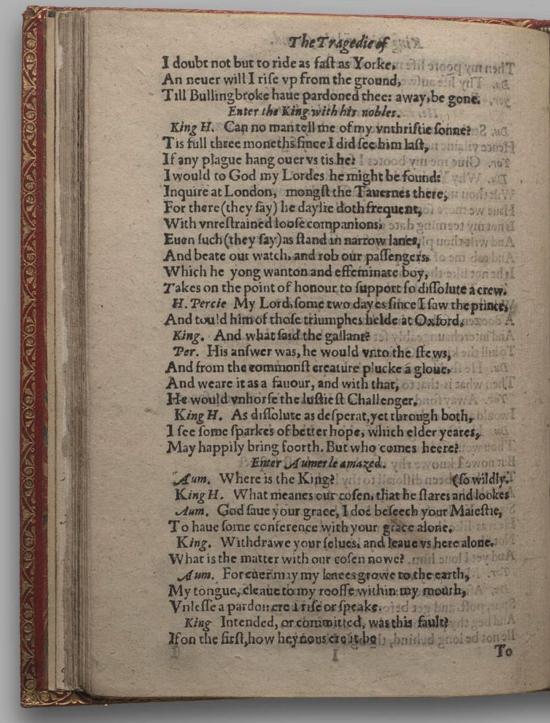 The Tragedie of
I doubt not but to ride as fast as Yorke,
An neuer will I rise vp from the ground,
Till Bullingbroke haue pardoned thee: away, be gone.
Enter the King with his nobles.
King H. Can no man tell me of my vnthriftie sonne?
Tis full three moneths since I did see him last,
If any plague hang ouer vs tis he:
I would to God my Lordes he might be found:
Inquire at London, mongst the Tauernes there,
For there (they say) he daylie doth frequent,
With vnrestrained loose companions,
Euen such (they say) as stand in narrow lanes,
And beate our watch, and rob our passengers,
Which he yong wanton and effeminate boy,
Takes on the point of honour to support so dissolute a crew.
H. Percie My Lord, some two dayes since I saw the prince,
And tould him of those triumphes helde at Oxford.
King. And what said the gallant?
Per. His answer was, he would vnto the stews,
And from the commonst creature plucke a gloue,
And weare it as a fauour, and with that,
He would vnhorse the lustiest Challenger.
King H. As dissolute as desperat, yet through both,
I see some sparkes of better hope, which elder yeares,
May happily bring foorth. But who comes heere?
Enter Aumerle amazed.
Aum. Where is the King? (so wildly.
King H. What meanes our cosen, that he stares and lookes
Aum. God saue your grace, I doe beseech your Maiestie,
To haue some conference with your grace alone.
King. Withdrawe your selues, and leaue vs here alone.
What is the matter with our cosen nowe?
Aum. For euer may my knees growe to the earth,
My tongue, cleaue to my rooffe within my mouth,
Vnlesse a pardon ere I rise or speake.
King Intended, or committed, was this fault?
If on the first, how heynous ere it be
To